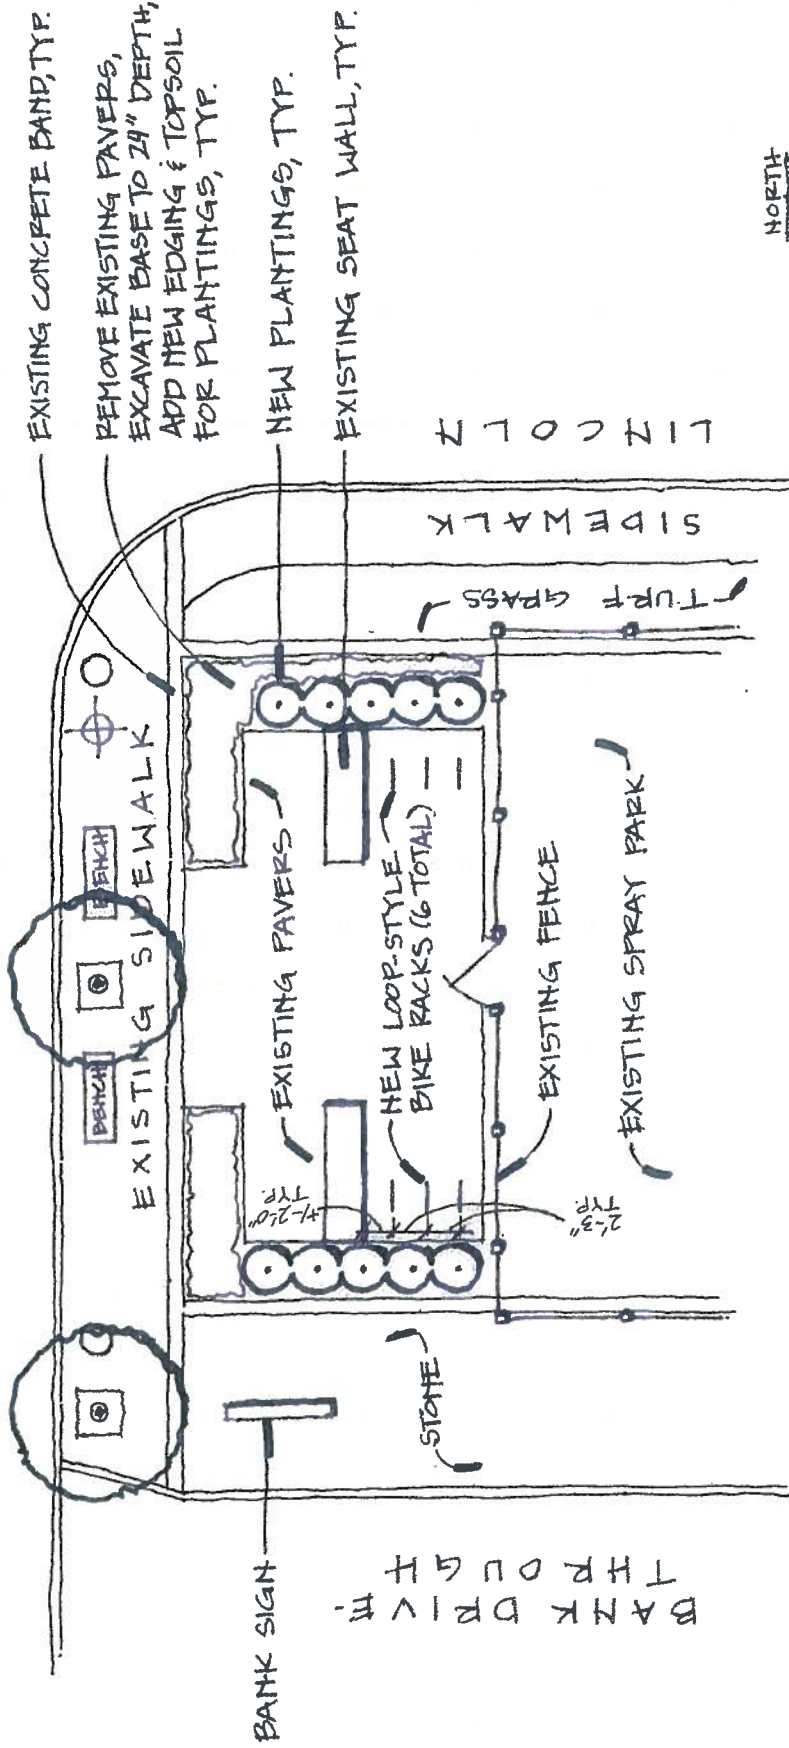 EXISTING CONCRETE BAND, TYP.
REMOVE EXISTING PAVERS,
EXCAVATE BASE TO 24" DEPTH,
ADD NEW EDGING & TOPSOIL
FOR PLANTINGS, TYP.
NEW PLANTINGS, TYP.
EXISTING SEAT WALL, TYP.
LINCOLN
SIDEWALK
TURF GRASS
NORTH
BENCH
BENCH
EXISTING SIDEWALK
EXISTING PAVERS
NEW LOOP-STYLE
BIKE RACKS (6 TOTAL)
EXISTING FENCE
EXISTING SPRAY PARK
+/-2'-0"
TYP.
2'-3"
TYP.
STONE
BANK SIGN
BANK DRIVE-
THROUGH